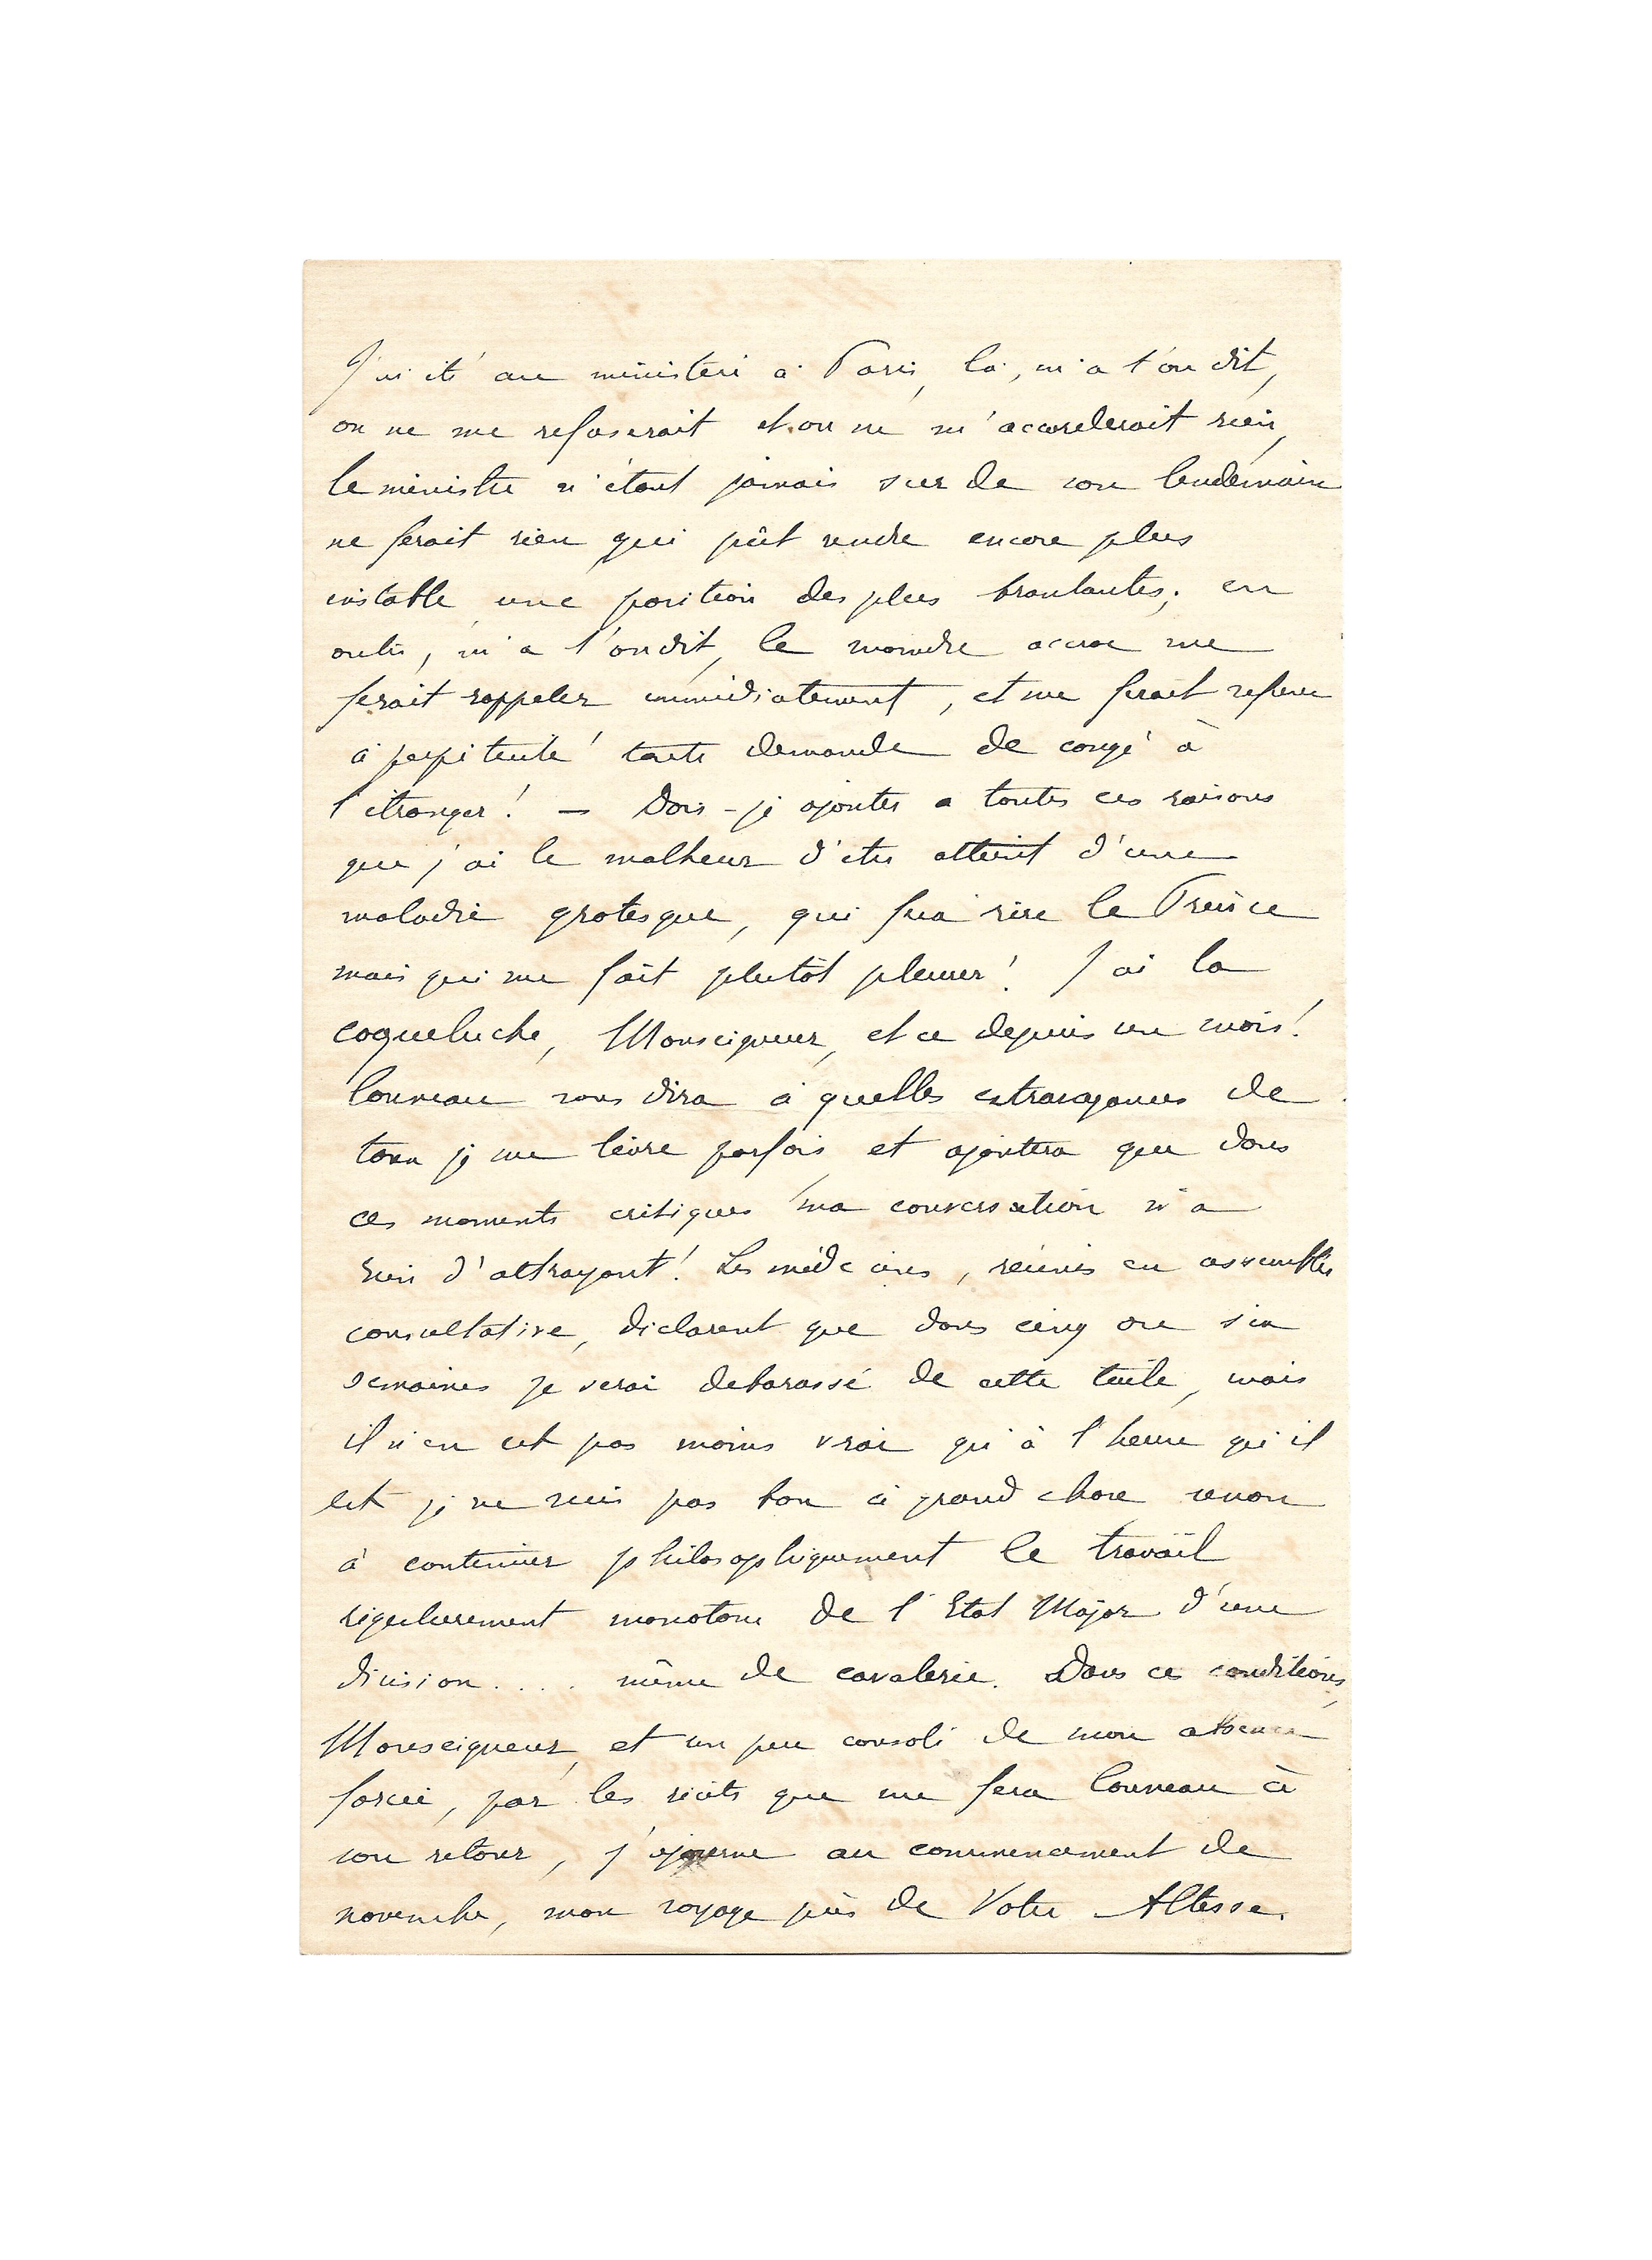 J'ai été au ministère à Paris, là, m'a t'on dit,
on ne me refuserait et on ne m'accorderait rien,
le ministre n'étant jamais sur de son lendemain
ne ferait rien qui pût rendre encore plus
instable une position des plus branlantes; en
outre, m'a t'on dit, le moindre accroc me
ferait rappeler immédiatement, et me ferait refuser
à perpétuité toute demande de congé à
l'étranger! — Dois-je ajouter a toutes ces raisons
que j'ai le malheur d'être atteint d'une
maladie grotesque, qui fera rire le Prince
mais qui me fait plutôt pleurer! J'ai la
coqueluche, Monseigneur, et ce depuis un mois!
Louveau vous dira à quelles extravagances de
toux je me livre parfois et ajoutera que dans
ces moments critiques ma conversation n'a
rien d'attrayant! Les médecins, réunis en assemblée
consultative, déclarent que dans cinq ou six
semaines je serai debarassé de cette tuile, mais
il n'en est pas moins vrai qu'à l'heure qu'il
est je ne suis pas bon à grand chose sinon
à continuer philosophiquement le travail
régulièrement monotone de l'Etat Major d'une
division.... même de cavalerie. Dans ces conditions,
Monseigneur, et un peu consolé de mon absence
forcée, par les récits que me fera Louveau à
son retour, j'ajourne au commencement de
novembre, mon voyage près de Votre Altesse.